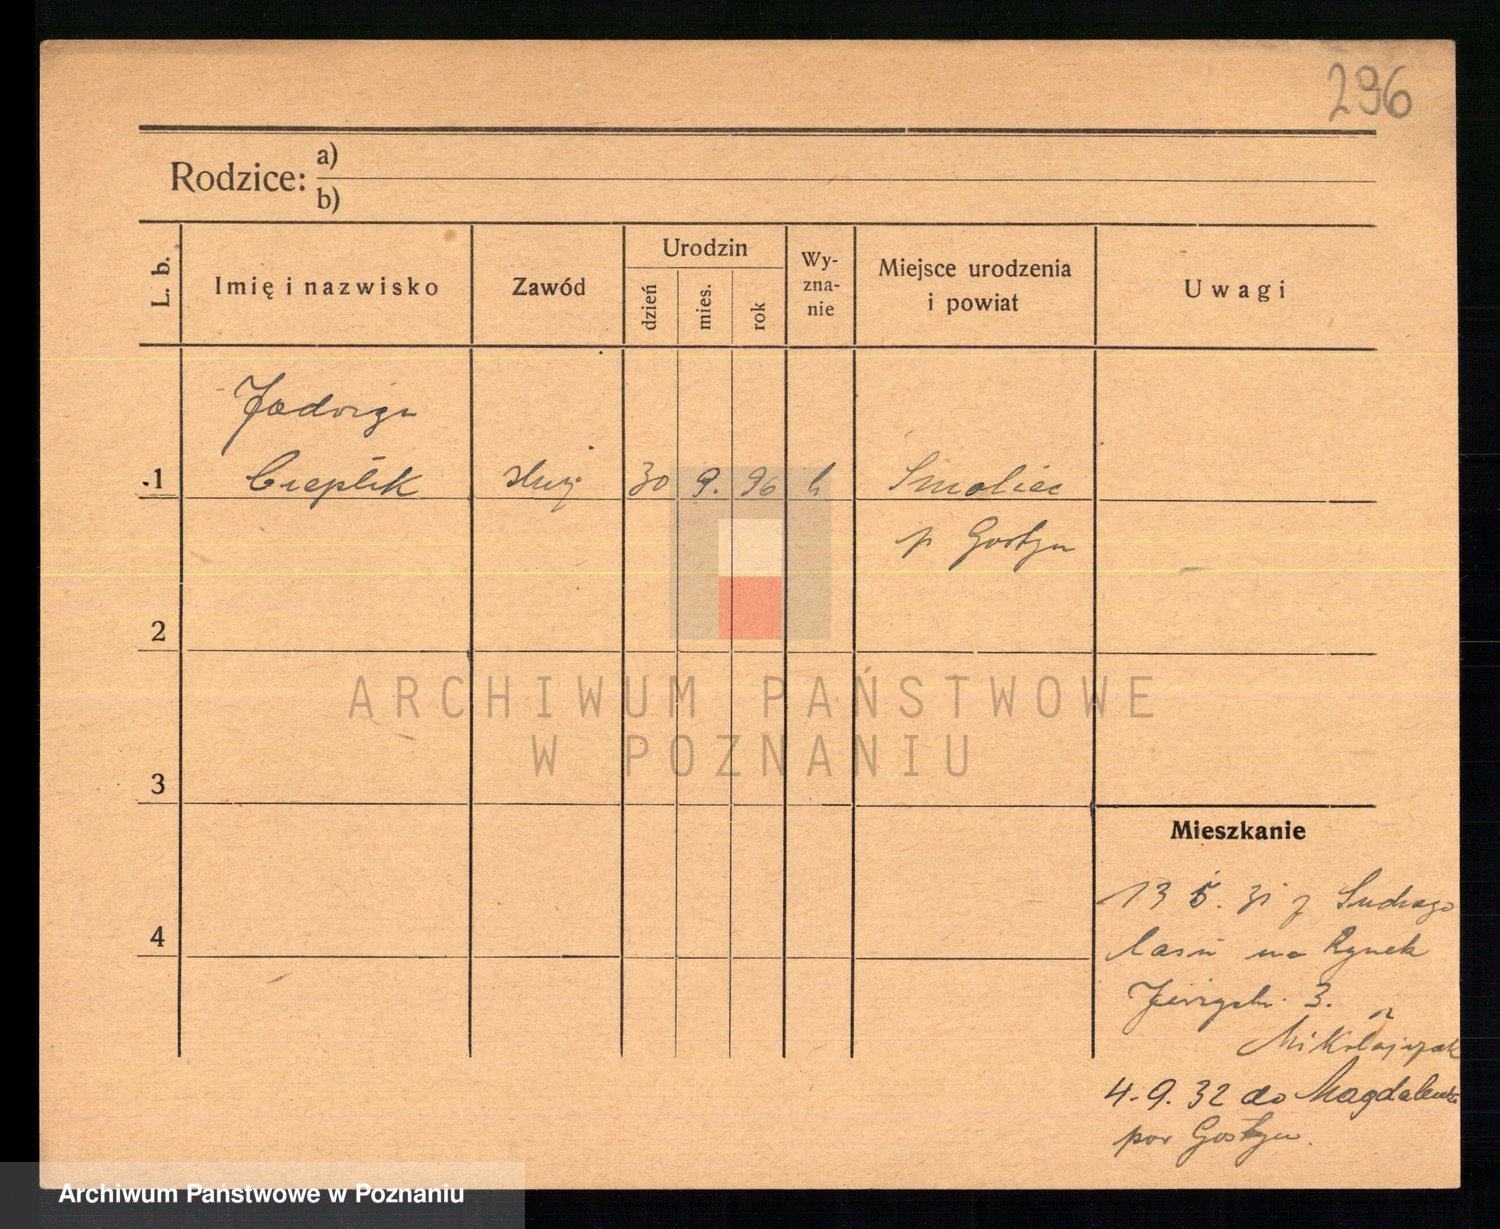 296
Rodzice: a)
b)
L. b.
Imię i nazwisko
Zawód
Urodzin
dzień
mies.
rok
Wy-
zna-
nie
Miejsce urodzenia
i powiat
Uwagi
Jadwiga
1 Cieplik służ 30 9. 96 k Smolice
p Gostyn
2
ARCHIWUM PAŃSTWOWE
W POZNANIU
3
Mieszkanie
13 5. 31 z
4
na Rynek
3.
Mikołajczak
4.9.32 do Magdalenki
pow Gostyn.
Archiwum Państwowe w Poznaniu